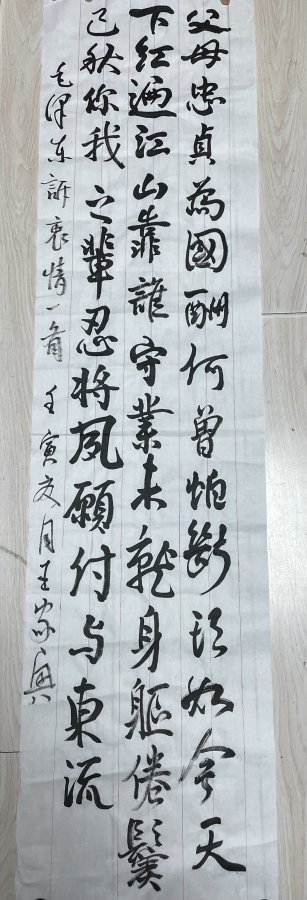 父母忠貞為國酬何曾怕斷頭如今天
下红遍江山靠誰守業未就身軀倦鬓
已秋你我之輩忍将夙願付与東流
毛泽东訴衷情一首 壬寅夏月王家興